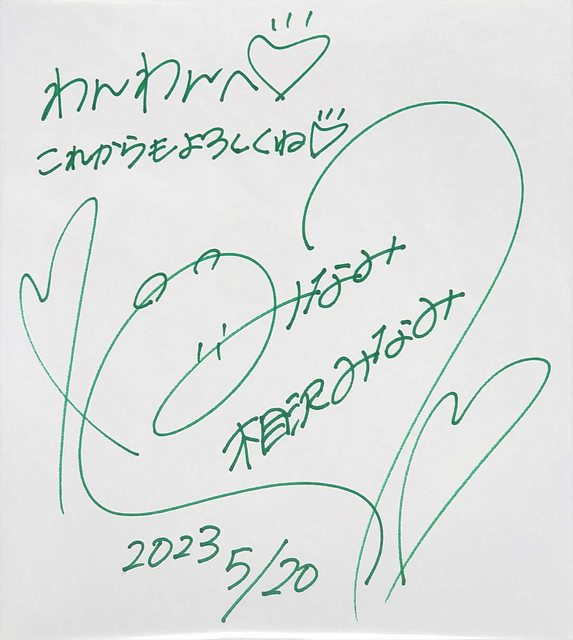 わんわんへ♡
これからもよろしくね♡
みなみ
相沢みなみ
2023 5/20